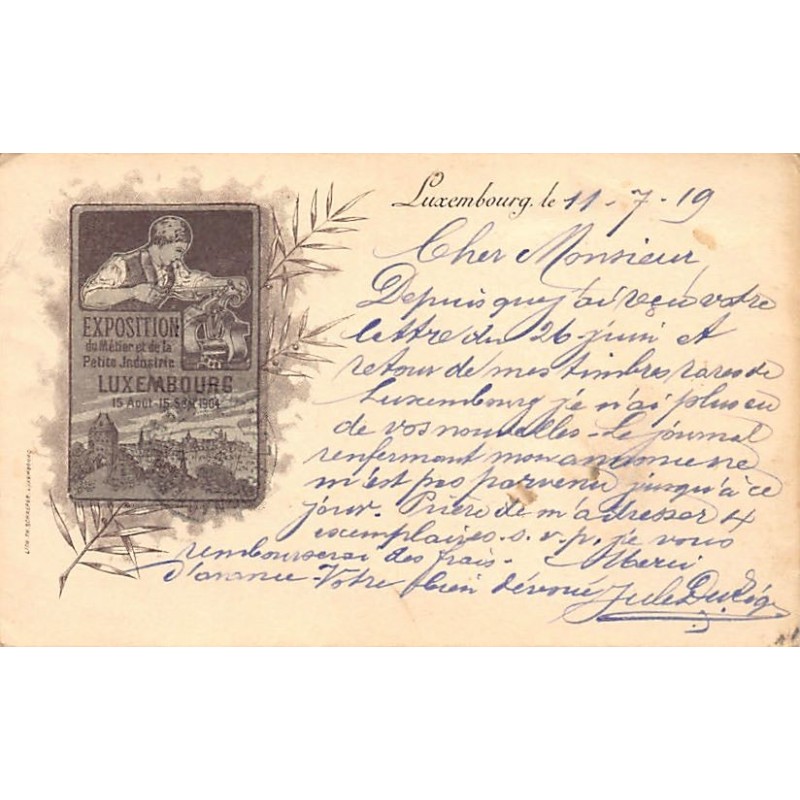 Luxembourg, le 11-7-19
Cher Monsieur
Depuis que j'ai reçu votre
lettre du 26 juin et
retour de mes timbres rares de
Luxembourg je n'ai plus eu
de vos nouvelles - Le journal
renfermant mon annonce ne
m'est pas parvenu jusqu'à ce
jour. Prière de m'adresser 4
exemplaires - s.v.p. je vous
rembourserai des frais - Merci
d'avance - Votre bien dévoué Jules
EXPOSITION
du Métier et de la
Petite Industrie
LUXEMBOURG
15 Août - 15 Sept 1904